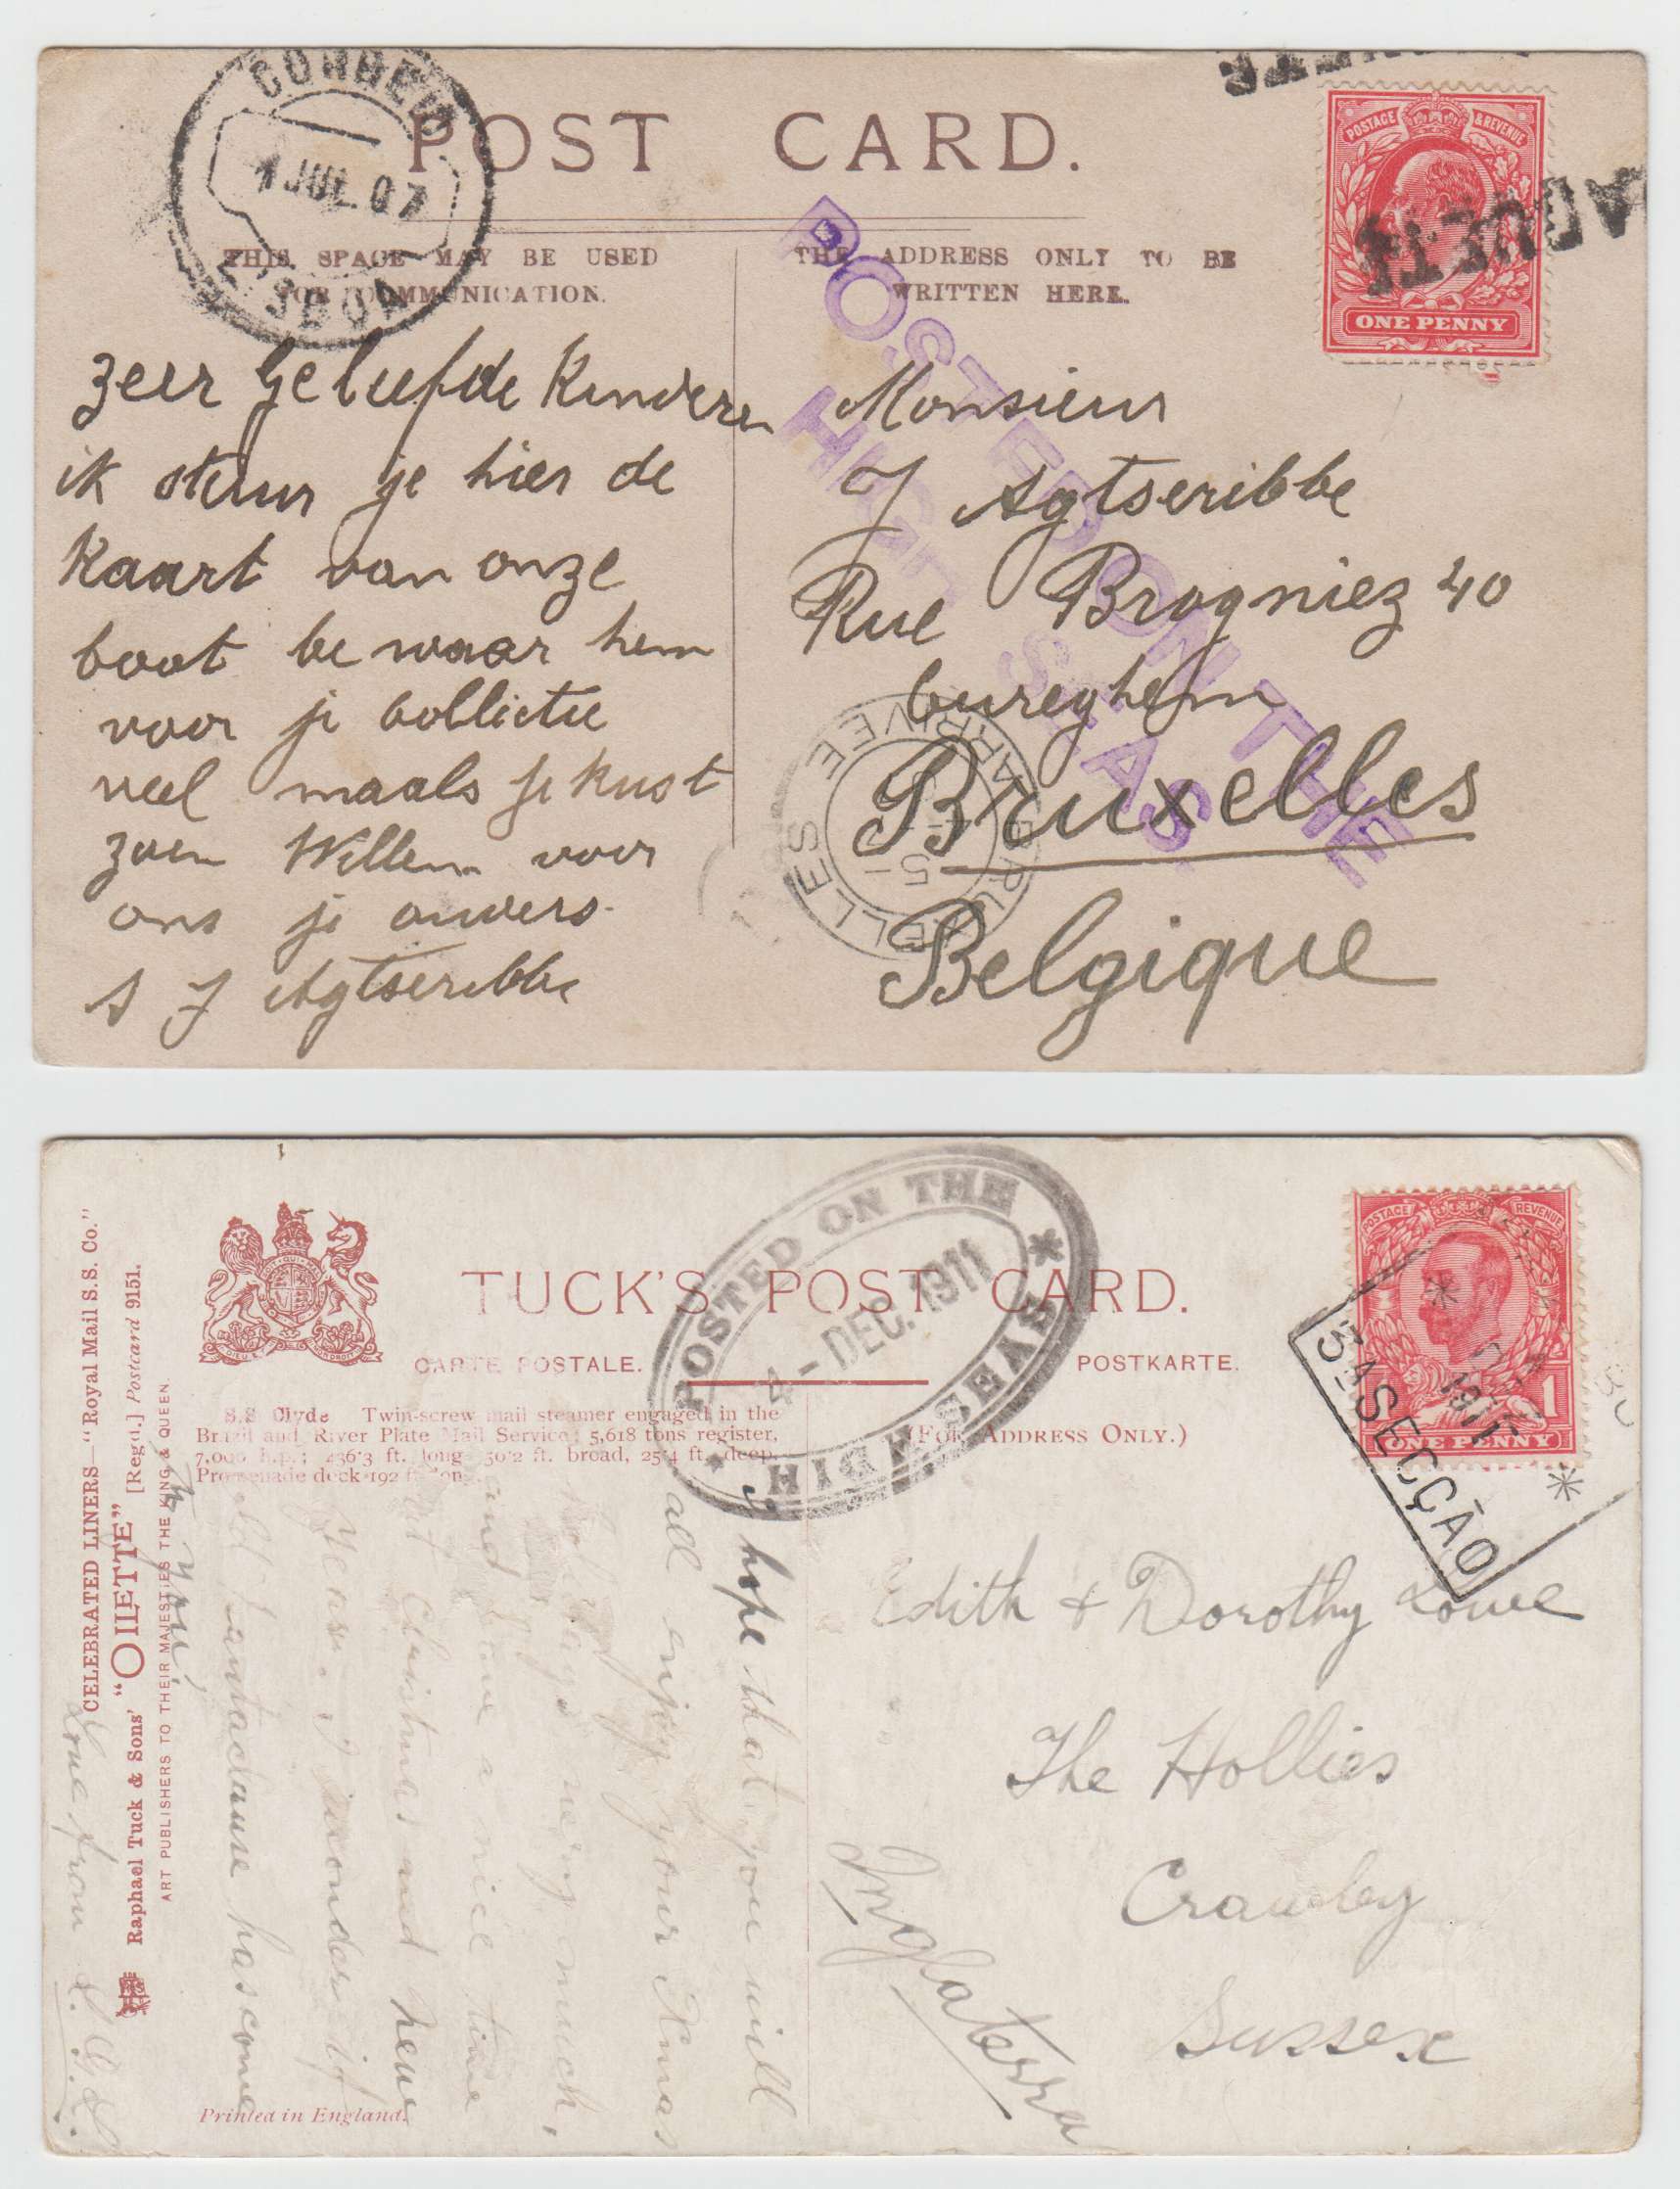 CORREIO
1 JUL. 07
LISBOA
POST CARD.
THIS SPACE MAY BE USED
FOR COMMUNICATION.
THE ADDRESS ONLY TO BE
WRITTEN HERE.
POSTAGE & REVENUE
ONE PENNY
PAQUETE
POSTED ON THE
HIGH SEAS.
zeer geliefde Kinderen
ik stuur je hier de
Kaart van onze
boot bewaar hem
voor je collictie
veel maals je kust
zoen Willem voor
ons je ouders
S J Agtseribbe
Monsieur
J Agtseribbe
Rue Brogniez 40
cureghem
Bruxelles
Belgique
BRUXELLES
ARRIVEE
5
CELEBRATED LINERS—"Royal Mail S.S. Co."
Raphael Tuck & Sons' "OILETTE" [Regd.] Postcard 9151.
ART PUBLISHERS TO THEIR MAJESTIES THE KING & QUEEN.
TUCK'S POST CARD.
CARTE POSTALE.
POSTKARTE.
(FOR ADDRESS ONLY.)
S.S Clyde Twin-screw mail steamer engaged in the
Brazil and River Plate Mail Service; 5,618 tons register,
7,000 h.p.; 436'3 ft. long 50'2 ft. broad, 25'4 ft. deep.
Promenade deck 192 ft. long.
POSTED ON THE
4 - DEC. 1911
HIGH SEAS
POSTAGE REVENUE
ONE PENNY
1
1911
3A SECÇÃO
I hope that you will
all enjoy your Xmas
holidays very much,
and have a nice time
at Christmas and New
Year. I wonder if
old Santaclause has come
to you.
Love from L. G. L.
Edith & Dorothy Lowe
The Hollies
Crawley
Sussex
Inglaterra
Printed in England.